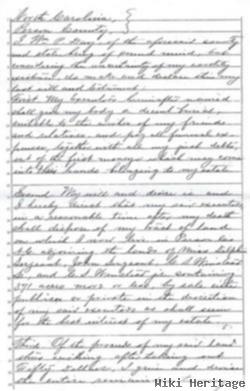 North Carolina, }
Person County, }
I Wm P. Day of the aforesaid county
and state being of sound mind, but
considering the uncertainty of my earthly
existence, do make and declare this my
last will and testament:
First: My Executors hereinafter named
shall give my body a decent burial,
suitable to the wishes of my friends
and relatives and pay all funeral ex-
penses, together with all my just debts,
out of the first moneys which may come
into their hands belonging to my estate
Second My will and desire is and
I hereby direct that my said executors
in a reasonable time after my death
shall dispose of my tract of land
on which I now live in Person Co.
N.C. adjoining the lands of
John Sergent, C. S. Winstead
and C. S. Winstead Jr. containing
391 acres more or less by sale either
publicly or private in the discretion
of my said executors as shall seem
for the best interest of my estate.
Third. Of the proceeds of my said land
after
Dollars,